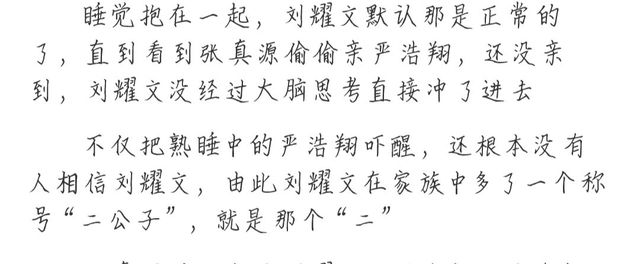 睡觉抱在一起，刘耀文默认那是正常的
了，直到看到张真源偷偷亲严浩翔，还没亲
到，刘耀文没经过大脑思考直接冲了进去
不仅把熟睡中的严浩翔吓醒，还根本没有
人相信刘耀文，由此刘耀文在家族中多了一个称
号“二公子”，就是那个“二”